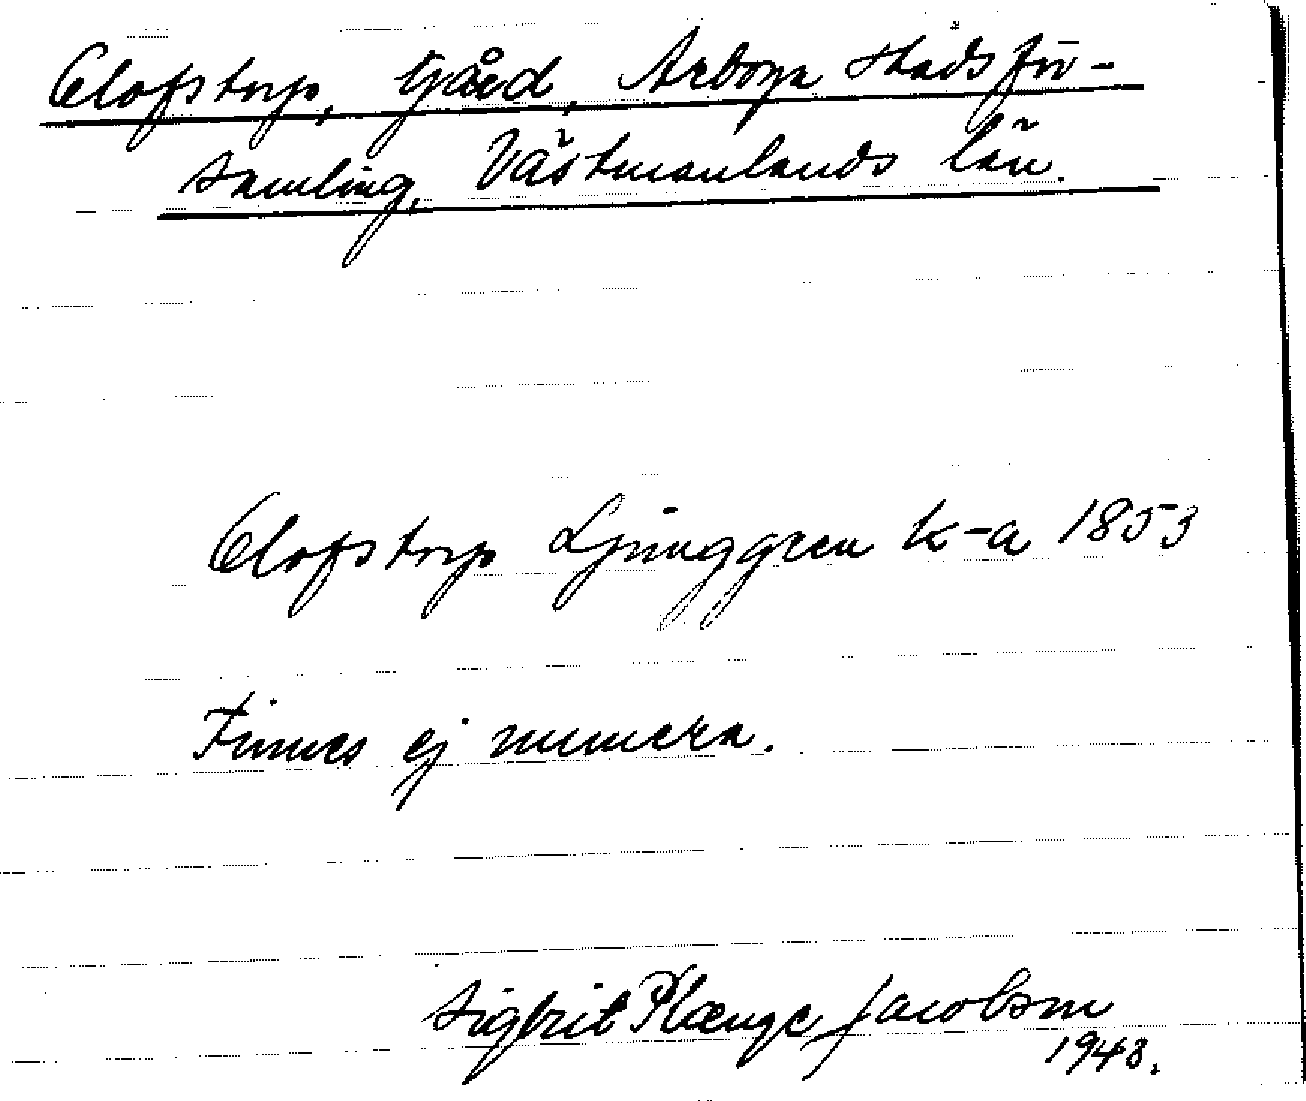 Olofstorp, Gård, Arboga stadsför-
samling, Västmanlands län.
Olofstorp Ljunggren k-a 1853
Finnes ej numera.
Sigbrit Plænge Jacobson
1948.